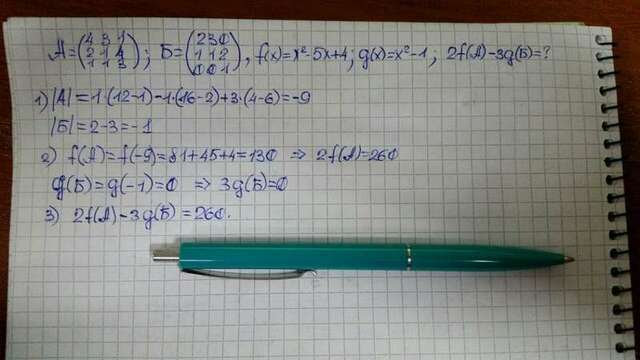 A=(4 3 1
2 1 4
1 1 3); Б=(2 3 0
1 1 2
0 0 1), f(x)=x²-5x+4; g(x)=x²-1; 2f(A)-3g(Б)=?
1) |A|=1·(12-1)-1·(16-2)+3·(4-6)=-9
|Б|=2-3=-1
2) f(A)=f(-9)=81+45+4=130 ⇒ 2f(A)=260
g(Б)=g(-1)=0 ⇒ 3g(Б)=0
3) 2f(A)-3g(Б)=260.